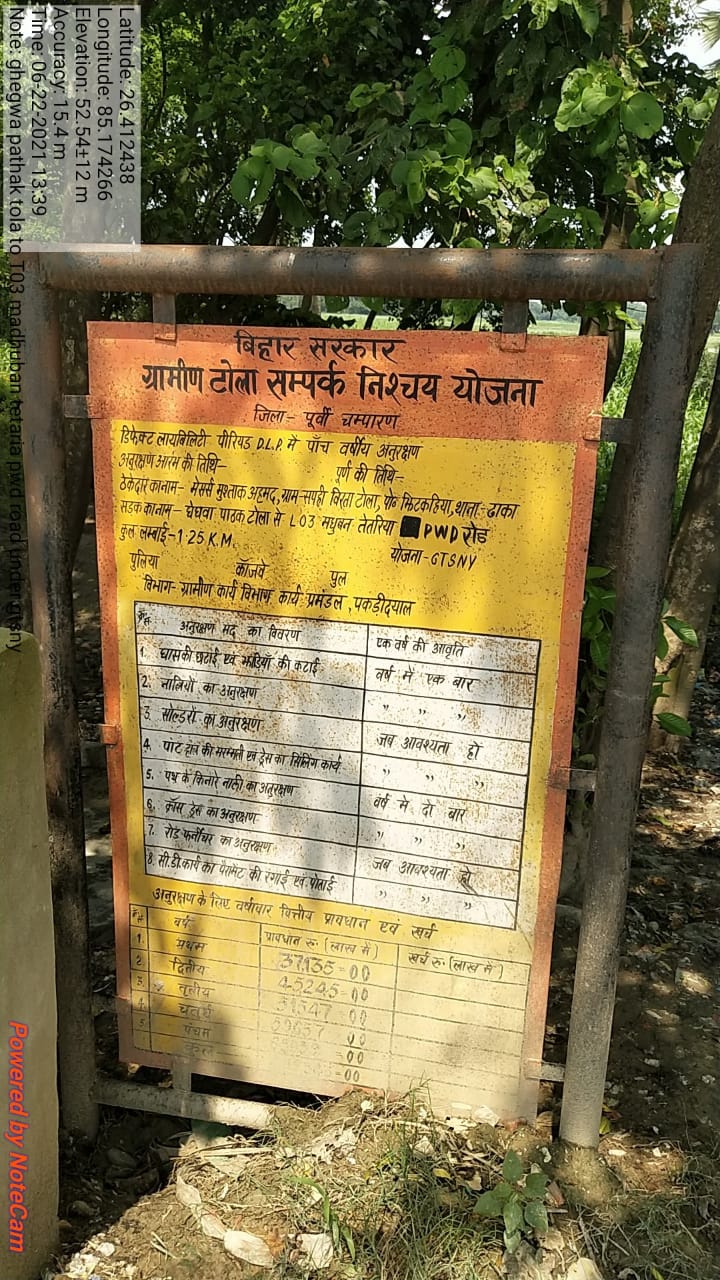 Latitude: 26.412438
Longitude: 85.174266
Elevation: 52.54±12 m
Accuracy: 15.4 m
Time: 06-22-2021 13:39
Note: ghegwa pathak tola to T03 madhuban tetaria pwd road under gtsny
बिहार सरकार
ग्रामीण टोला सम्पर्क निश्चय योजना
जिला- पूर्वी चम्पारण
डिफेक्ट लायबिलिटी पीरियड D.L.P. में पाँच वर्षीय अनुरक्षण
अनुरक्षण आरंभ की तिथि- पूर्ण की तिथि-
ठेकेदार का नाम- मेसर्स मुश्ताक अहमद, ग्राम-सपही विरता टोला, पो० झिटकहिया, थाना-ढाका
सड़क का नाम- घेघवा पाठक टोला से L03 मधुबन तेतरिया PWD रोड
कुल लम्बाई-1.25 K.M. योजना-GTSNY
पुलिया कॉजवे पुल
विभाग- ग्रामीण कार्य विभाग, कार्य प्रमंडल, पकड़ीदयाल
क्र# अनुरक्षण मद का विवरण एक वर्ष की आवृति
1. घास की छटाई एवं झाड़ियाँ की कटाई वर्ष में एक बार
2. नालियों का अनुरक्षण " " "
3. सोल्डरों का अनुरक्षण जब आवश्यता हो
4. पाट होल की मरम्मती एवं ड्रेस का सिलिंग कार्य " " "
5. पथ के किनारे नाली का अनुरक्षण वर्ष में दो बार
6. क्रॉस ड्रेस का अनुरक्षण " " "
7. रोड फर्नीचर का अनुरक्षण जब आवश्यता हो
8. सी.डी. कार्य का पैरामेट की रंगाई एवं पोताई " " "
अनुरक्षण के लिए वर्षावार वित्तीय प्रावधान एवं खर्च
क्र# वर्ष प्रावधान रु. (लाख में) खर्च रु. (लाख में)
1. प्रथम 37135=00
2. द्वितीय 45245=00
3. तृतीय 00
4. चतुर्थ 00
5 पंचम =00
कुल =00
Powered by NoteCam